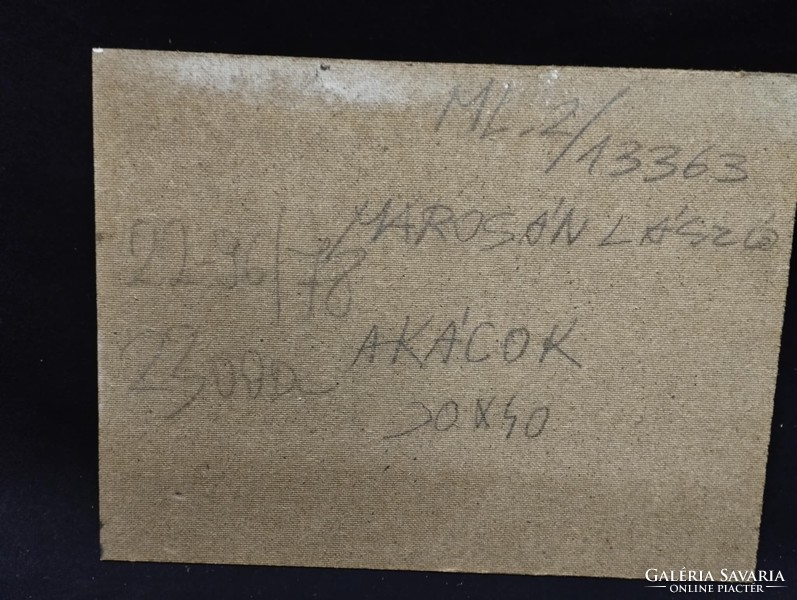 ML.2/13363
MAROSÁN LÁSZLÓ
22-96/78
AKÁCOK
23000.-
30X40
GALÉRIA SAVARIA
ONLINE PIACTÉR